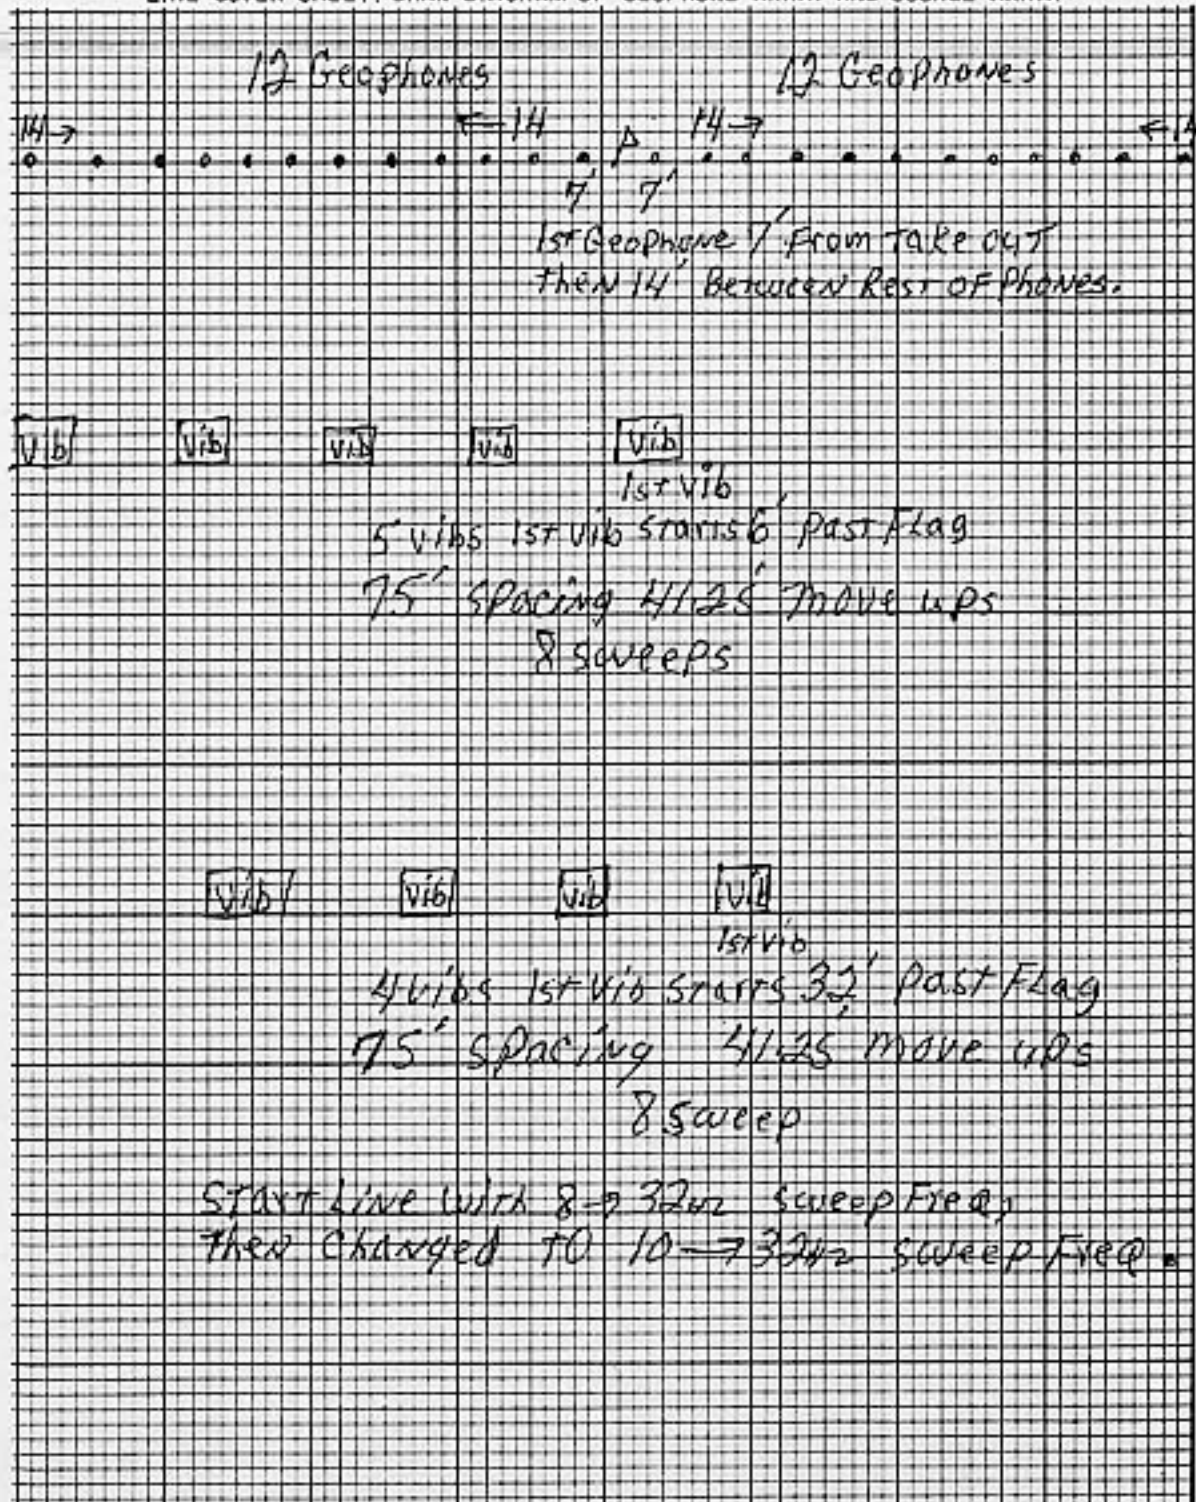 12 Geophones 12 Geophones
14→ ←14 14→ ←14
7' 7'
1st Geophone 7' From Take out
then 14' Between Rest OF Phones.
Vib Vib Vib Vib Vib
1st Vib
5 vibs 1st vib starts 6' past FLag
75' spacing 41.25' move ups
8 sweeps
Vib Vib Vib Vib
1st Vib
4 vibs 1st vib starts 32' past FLag
75' spacing 41.25' move ups
8 sweep
Start Line with 8→32Hz sweep Freq,
then changed TO 10→32Hz sweep Freq.